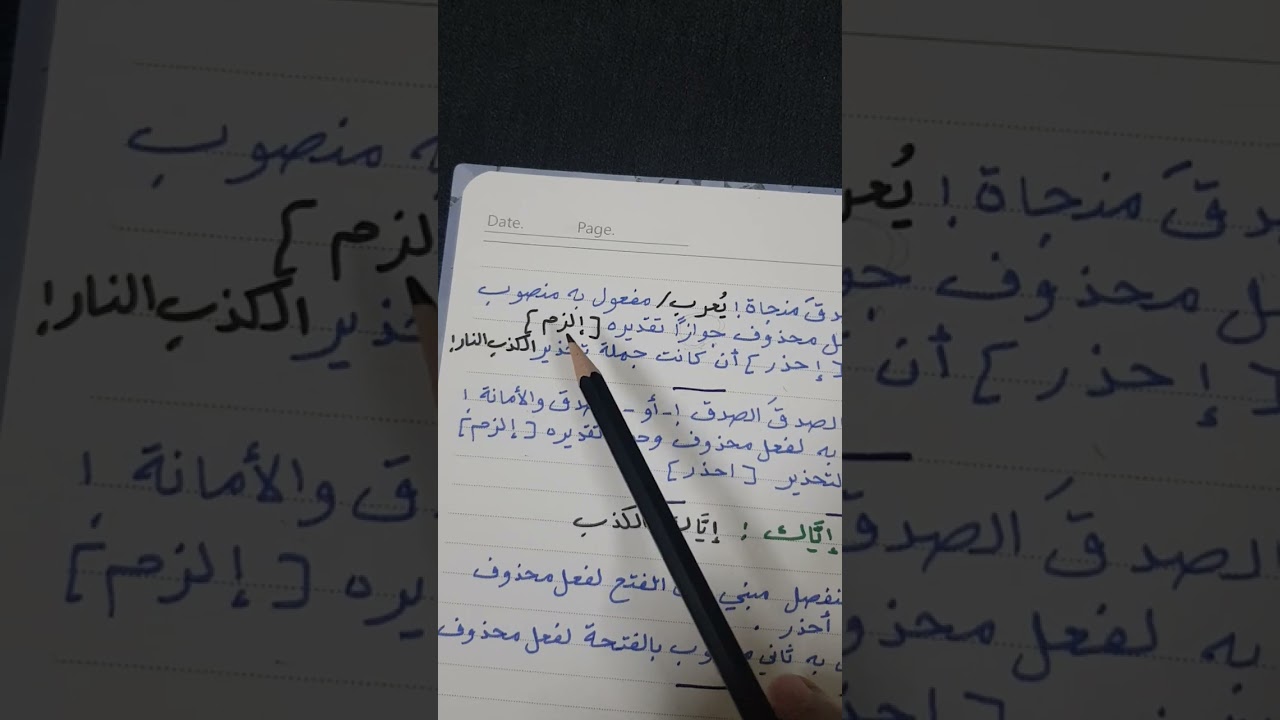 Date. Page.
منجاة! يُعرب/ مفعول به منصوب
محذوف جوازًا تقديره [إلزم]
[إحذر] أن كانت جملة تحذير الكذب النار!
الصدقَ الصدق! - أو - والأمانة!
به لفعل محذوف تقديره [إلزم]
[احذر]
إيَّاك: إيَّاك الكذب
مبني الفتح لفعل محذوف
أحذر.
به ثاني بالفتحة لفعل محذوف